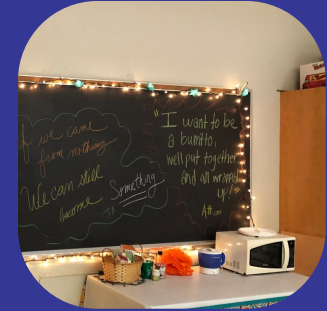 If we came
from nothing
We can still
become
Something
"I want to be
a burrito,
well put together
and all wrapped
up!"